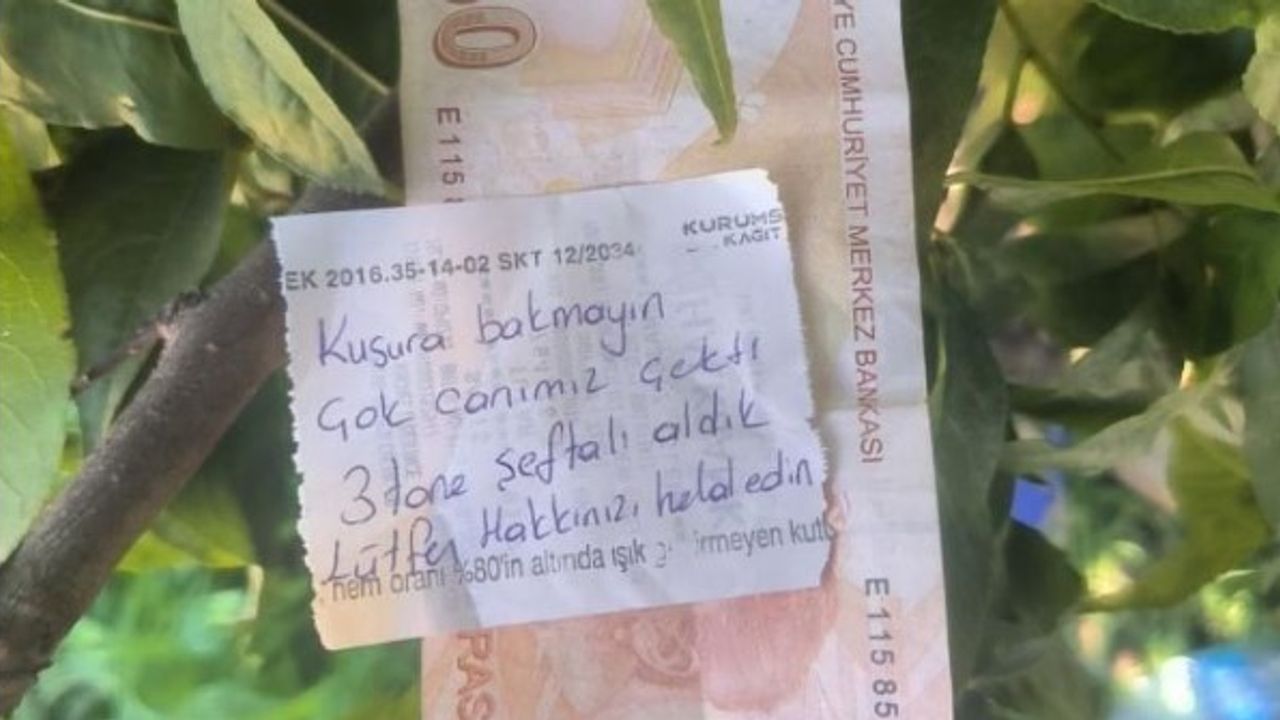 50
E 115 8
YE CUMHURİYET MERKEZ BANKASI
KURUMS
KAĞIT
EK 2016.35-14-02 SKT 12/2034
Kusura bakmayın
Çok canımız çekti
3 tane şeftali aldık
Lütfen Hakkınızı helal edin
nem oranı %80'in altında ışık
E 115 85
RAS